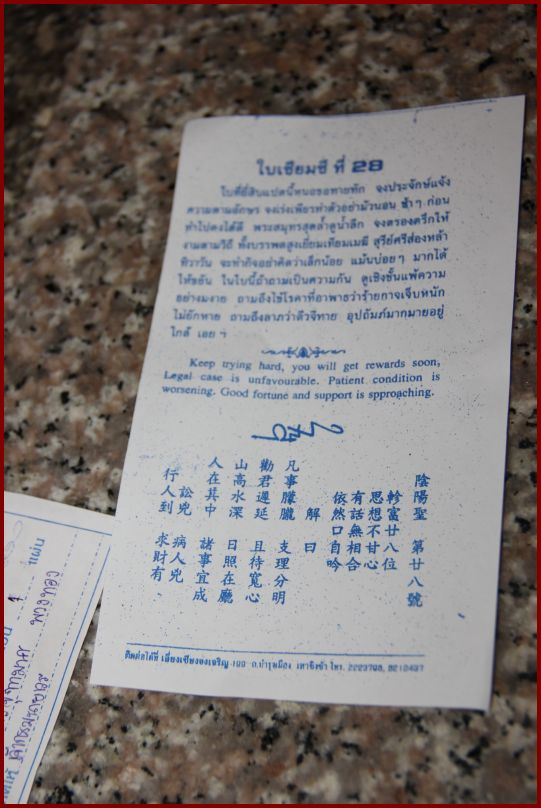 ใบเซียมซี ที่ 28
ใบที่ยี่สิบแปดนี้หนอขอทายทัก จงประจักษ์แจ้ง
ความตามอักษร จงเร่งเพียรทำตัวอย่ามัวนอน ช้า ๆ ก่อน
ทำไปคงได้ดี พระสมุทรสุดล้ำดูน้ำลึก จงตรองตรึกให้
งามตามวิถี ทั้งบรรพตสูงเยี่ยมเทียมเมฆี สุรีย์ศรีส่องหล้า
ทิวาวัน จะทำกิจอย่าคิดว่าเล็กน้อย แม้นบ่อย ๆ มากได้
ให้ขยัน ในใบนี้ถ้าถามเป็นความกัน ดูเชิงชั้นแพ้ความ
อย่างมงาย ถามถึงไข้โรคาที่อาพาธว่าร้ายกาจเจ็บหนัก
ไม่ยักหาย ถามถึงลาภว่าดีวจีทาย อุปถัมภ์มากมายอยู่
ใกล้ เอย ฯ
Keep trying hard, you will get rewards soon,
Legal case is unfavourable. Patient condition is
worsening. Good fortune and support is spproaching.
陰陽聖 第廿八號
軫富廿八位
思想不甘心
有話無相合
依然口自吟
解曰
凡事朦朧 支理分明
勸君遲延 且待寬心
山高水深 日照在廳
人在其中 諸事宜成
訟兇 病人兇
行人到 求財有
ติดต่อได้ที่ เลี่ยงเซียงจงเจริญ 199 ถ.บำรุงเมือง เสาชิงช้า โทร. 2223798, 6210437